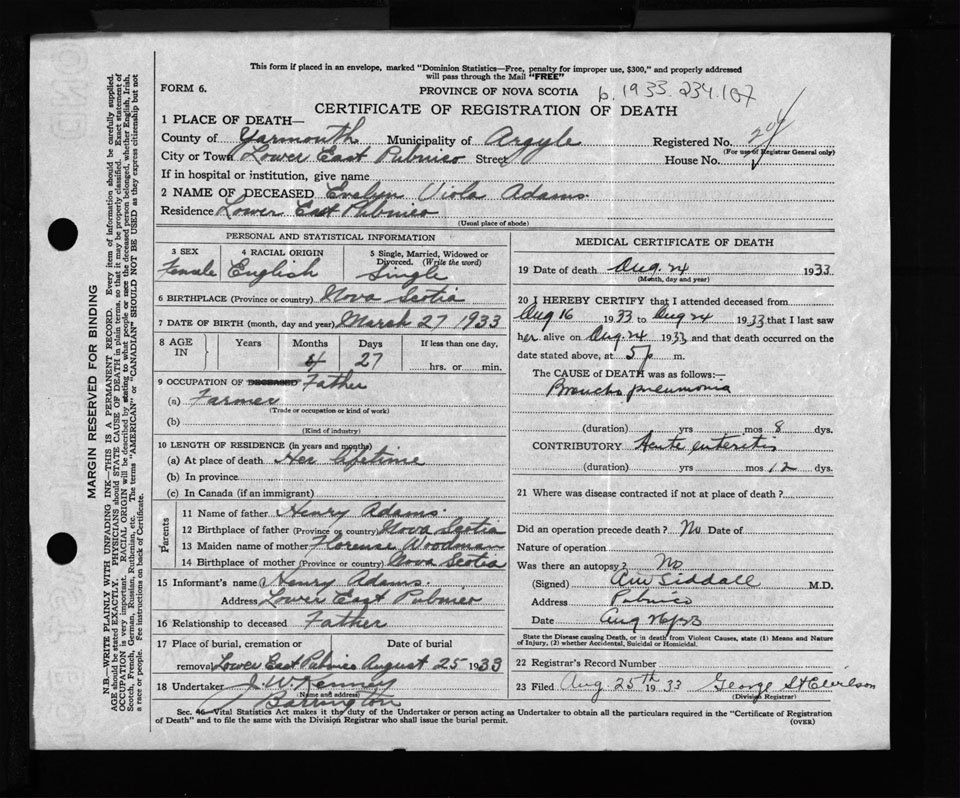 This form if placed in an envelope, marked "Dominion Statistics—Free, penalty for improper use, $300," and properly addressed
will pass through the Mail "FREE"
FORM 6.
PROVINCE OF NOVA SCOTIA
b. 1933. 234.107
CERTIFICATE OF REGISTRATION OF DEATH
1 PLACE OF DEATH—
County of Yarmouth Municipality of Argyle Registered No.
(For use of Registrar General only)
City or Town Lower East Pubnico Street House No.
If in hospital or institution, give name
2 NAME OF DECEASED Evelyn Viola Adams
Residence Lower East Pubnico
(Usual place of abode)
PERSONAL AND STATISTICAL INFORMATION
3 SEX 4 RACIAL ORIGIN 5 Single, Married, Widowed or
Divorced. (Write the word)
Female English Single
6 BIRTHPLACE (Province or country) Nova Scotia
7 DATE OF BIRTH (month, day and year) March 27 1933
8 AGE IN Years Months Days If less than one day,
4 27 hrs. or min.
9 OCCUPATION OF DECEASED Father
(a) Farmer
(Trade or occupation or kind of work)
(b)
(Kind of industry)
10 LENGTH OF RESIDENCE (in years and months)
(a) At place of death Her lifetime
(b) In province
(c) In Canada (if an immigrant)
Parents
11 Name of father Henry Adams.
12 Birthplace of father (Province or country) Nova Scotia
13 Maiden name of mother Florence Woodman
14 Birthplace of mother (Province or country) Nova Scotia
15 Informant's name Henry Adams.
Address Lower East Pubnico
16 Relationship to deceased Father
17 Place of burial, cremation or Date of burial
removal Lower East Pubnico August 25 1933
18 Undertaker J. W. Kenney
Name and address
Barrington
MEDICAL CERTIFICATE OF DEATH
19 Date of death Aug. 24 1933
(Month, day and year)
20 I HEREBY CERTIFY that I attended deceased from
Aug 16 1933 to Aug 24 1933 that I last saw
her alive on Aug. 24 1933 and that death occurred on the
date stated above, at 5 p m.
The CAUSE of DEATH was as follows:—
Broncho pneumonia
(duration) yrs mos 8 dys.
CONTRIBUTORY Acute enteritis
(duration) yrs mos 12 dys.
21 Where was disease contracted if not at place of death?
Did an operation precede death? No Date of
Nature of operation
Was there an autopsy? No
(Signed) Siddall M.D.
Address Pubnico
Date Aug 26/33
State the Disease causing Death, or in death from Violent Causes, state (1) Means and Nature
of Injury, (2) whether Accidental, Suicidal or Homicidal.
22 Registrar's Record Number
23 Filed Aug. 25th 1933 George
(Division Registrar)
Sec. 46—Vital Statistics Act makes it the duty of the Undertaker or person acting as Undertaker to obtain all the particulars required in the "Certificate of Registration
of Death" and to file the same with the Division Registrar who shall issue the burial permit.
(OVER)
MARGIN RESERVED FOR BINDING
N.B.—WRITE PLAINLY WITH UNFADING INK—THIS IS A PERMANENT RECORD. Every item of information should be carefully supplied.
AGE should be stated EXACTLY. PHYSICIANS should STATE CAUSE OF DEATH in plain terms, so that it may be properly classified. Exact statement of
OCCUPATION is very important. RACIAL ORIGIN will be described by stating to what people or race the deceased person belonged, whether English, Irish,
Scotch, French, German, Russian, Ruthenian, etc. The terms "AMERICAN" or "CANADIAN" SHOULD NOT BE USED as they express citizenship but not
a race or people. See instructions on back of Certificate.